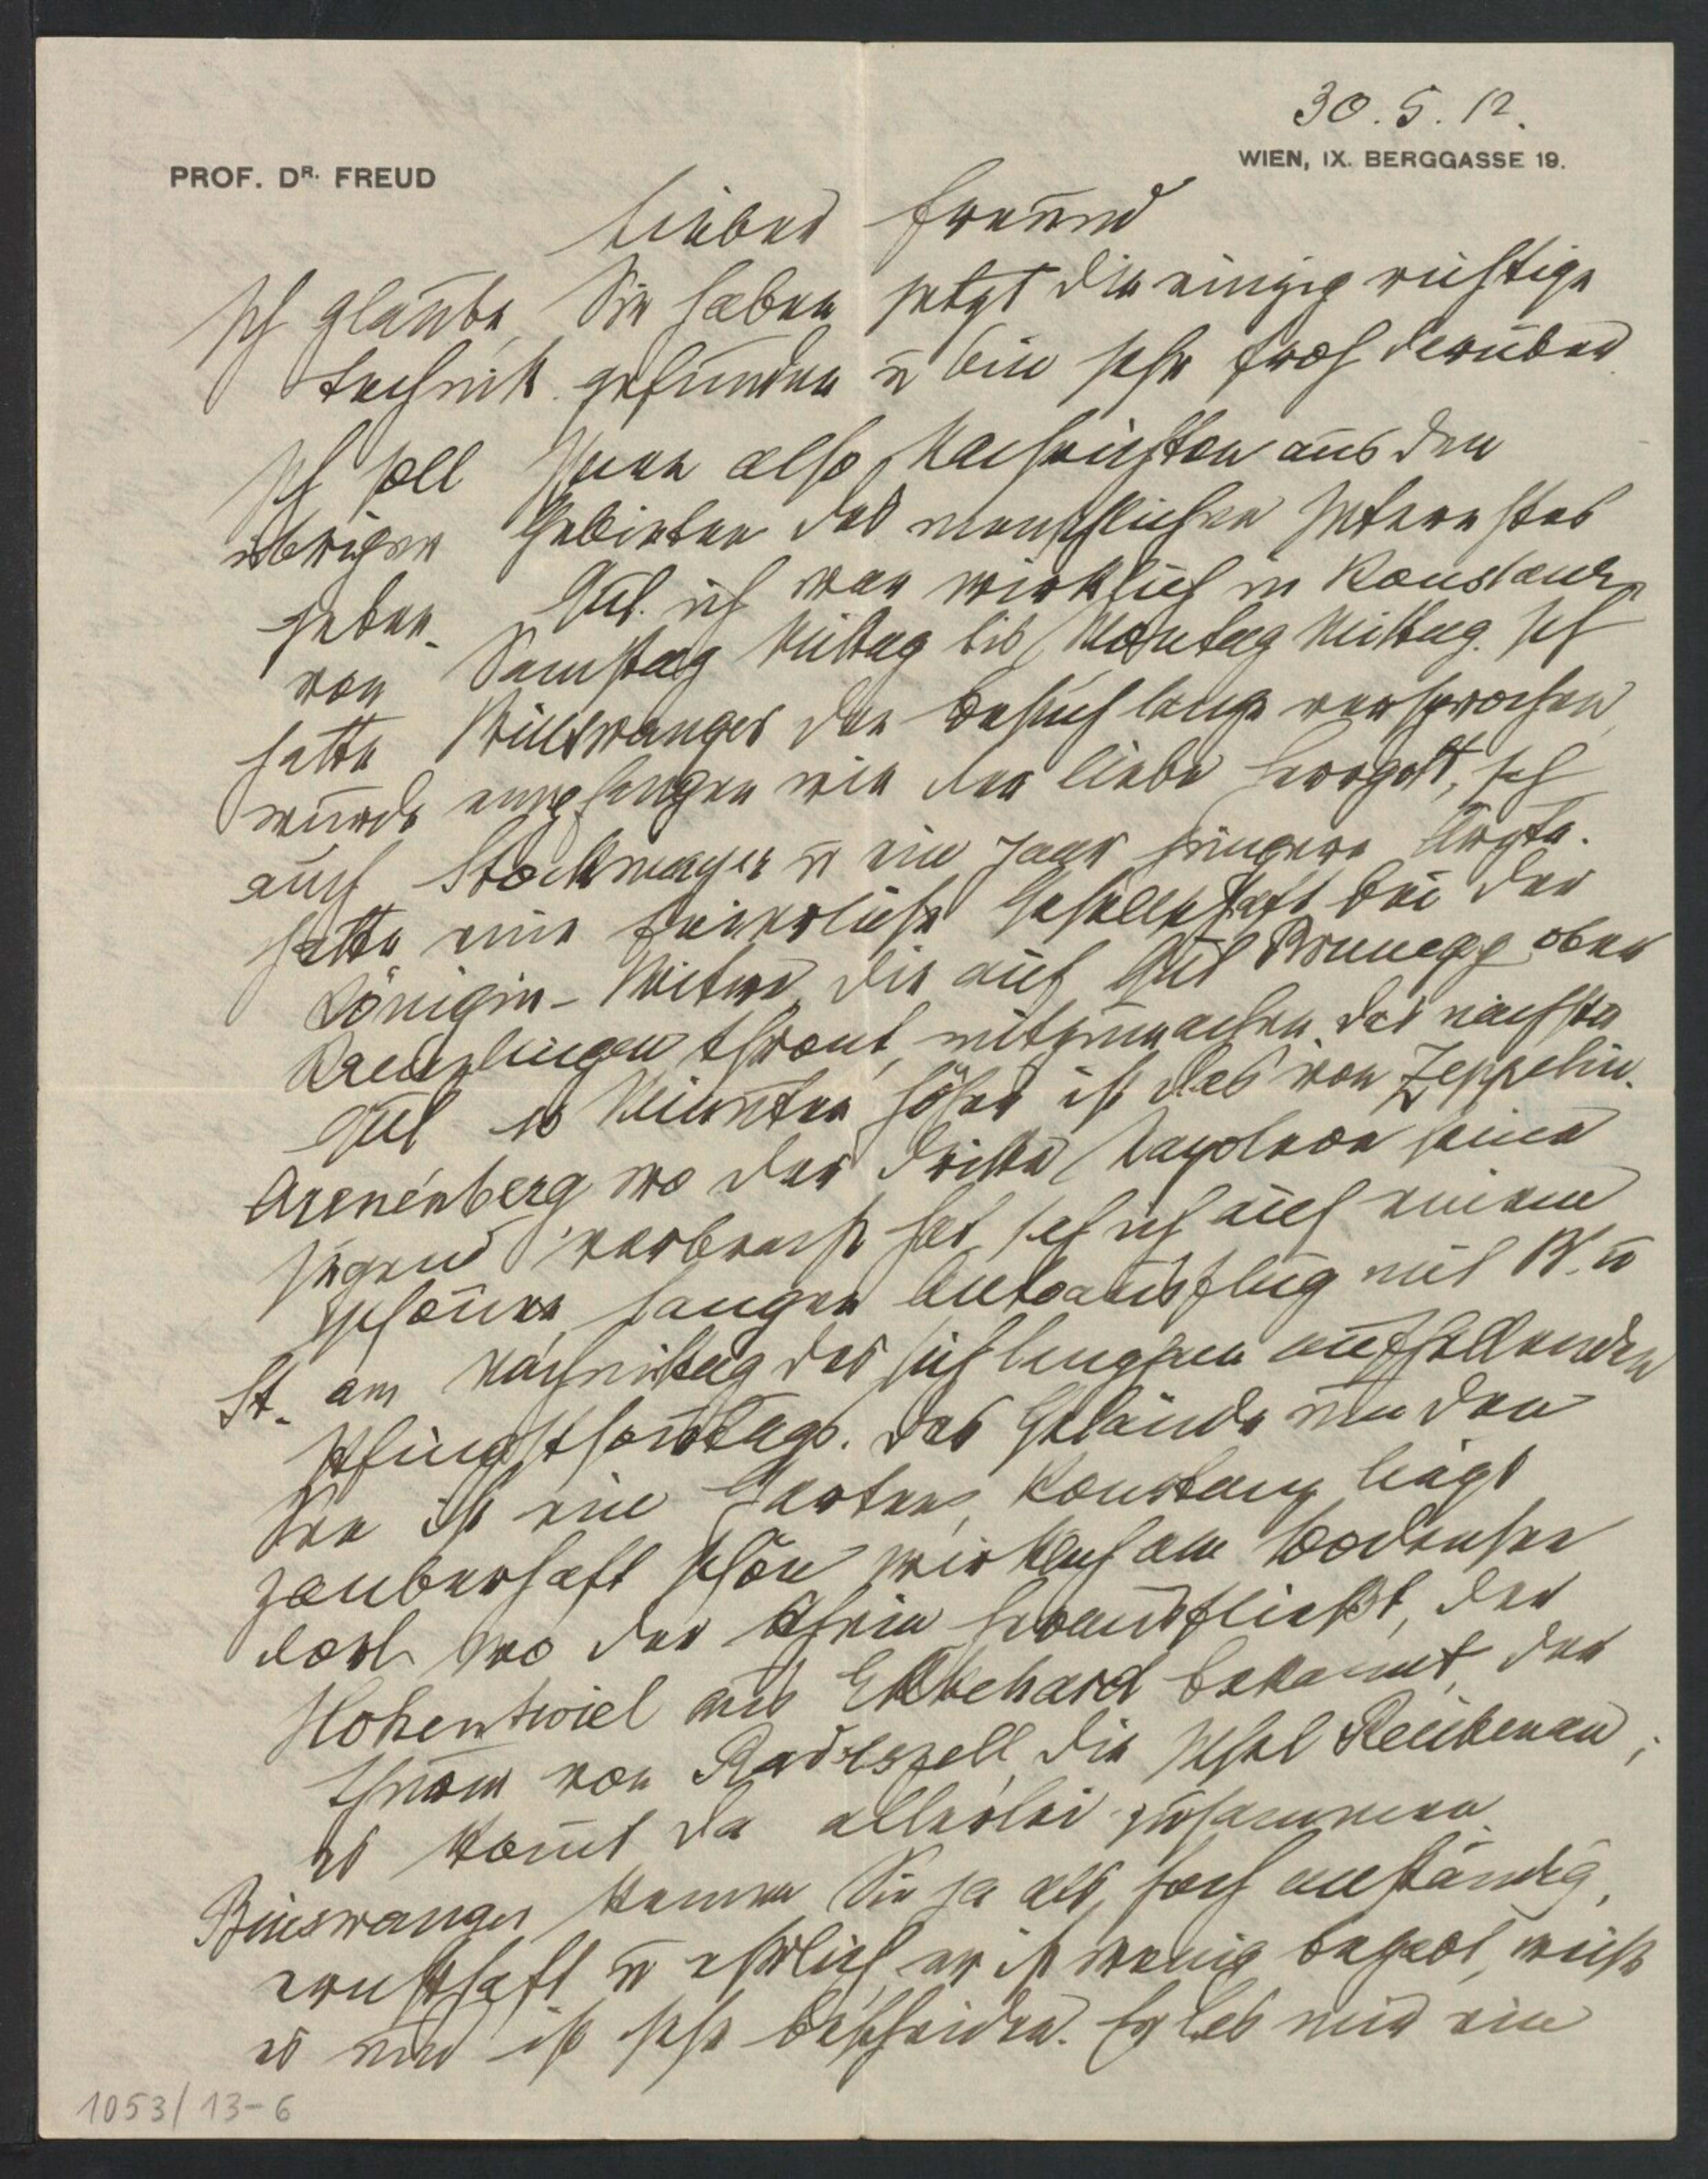 30. 5. 12.
PROF. DR. FREUD
WIEN, IX. BERGGASSE 19.
Lieber Freund
Ich glaube, Sie haben jetzt die einzig richtige
Technik gefunden u bin sehr froh darüber.
Ich soll Ihnen also Nachrichten aus den
übrigen Gebieten des menschlichen Interesses
geben. Gut. ich war wirklich in Konstanz
von Samstag Mittag bis Montag Mittag. Ich
hatte Binswanger den Besuch lange versprochen,
wurde empfangen wie der liebe Herrgott, sah
auch Stockmayer u ein paar jüngere Ärzte.
hatte eine feierliche Gesellschaft bei der
Königin-Witwe, die auf Gut Brunegg ober
Kreuzlingen thront, mitzumachen. das nächste
Gut 10 Minuten höher ist das von Zeppelin.
Arenenberg wo der dritte Napoleon seine
Jugend verbracht hat, sah ich auf einem
schönen, langen Autoausflug mit B. u
St. am Nachmittag des sich langsam aufhellenden
Pfingstsonntags. Das Gelände um den
See ist ein Garten, Konstanz liegt
zauberhaft schön wirklich am Bodensee
dort wo der Rhein herausfließt, der
Hohentwiel aus Ekkehard bekannt, der
Thurm von Radolszell, die Insel Reichenau;
es kommt da allerlei zusammen.
Binswanger kennen Sie ja als hochanständig,
ernsthaft u ehrlich, er ist wenig begabt, weiß
es und ist sehr bescheiden. Er hat mir ein
1053/13-6